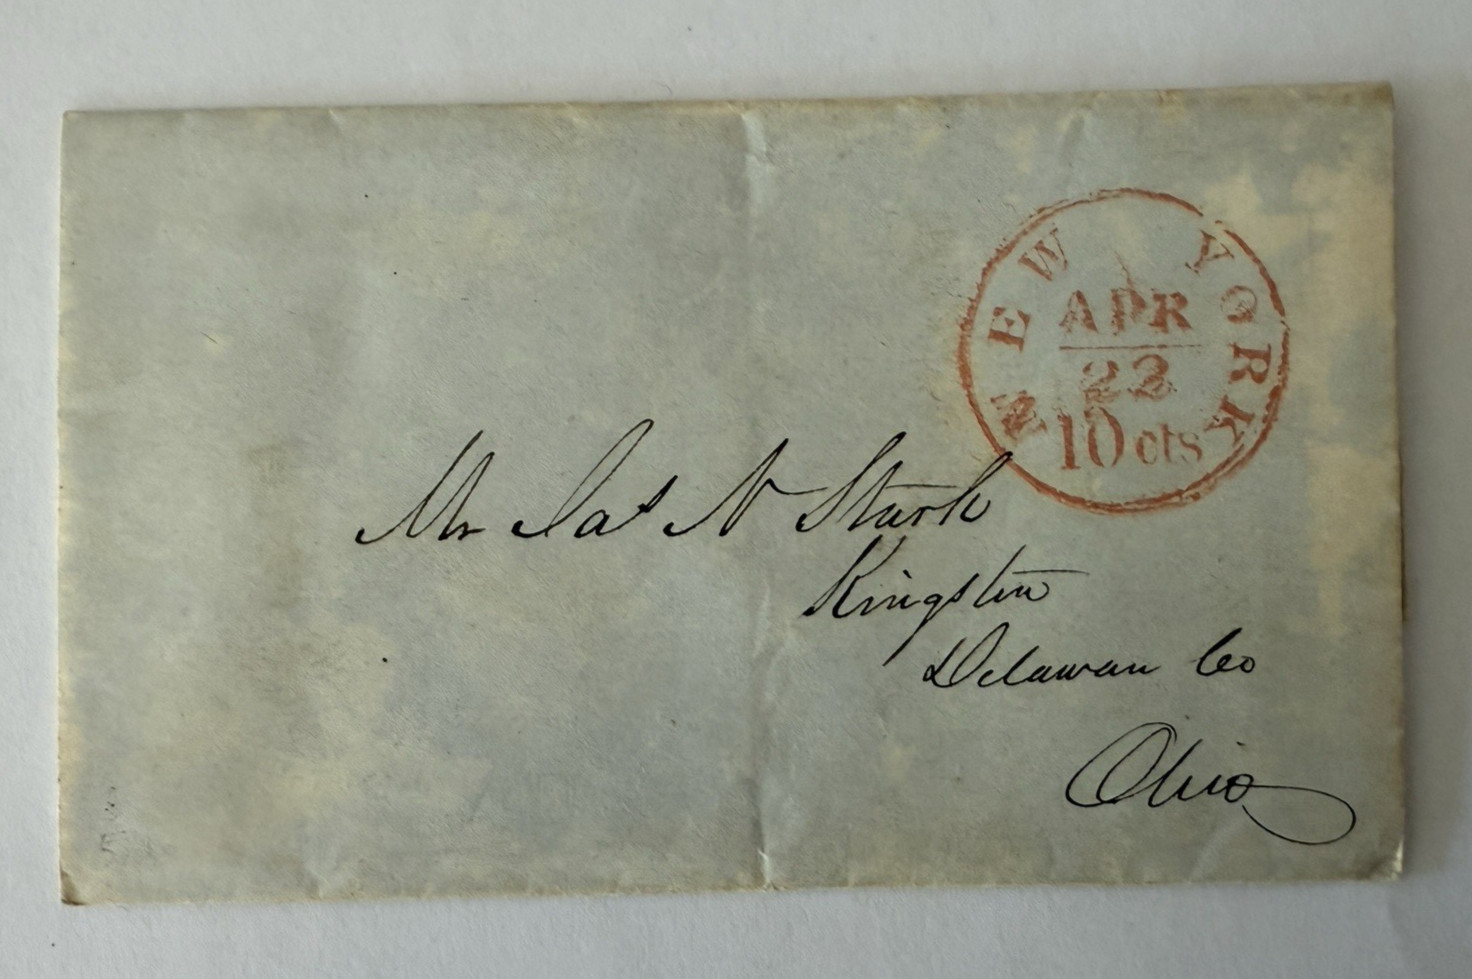 NEW YORK
APR
22
10 cts
Mr Jas N Stark
Kingston
Delawan Co
Ohio